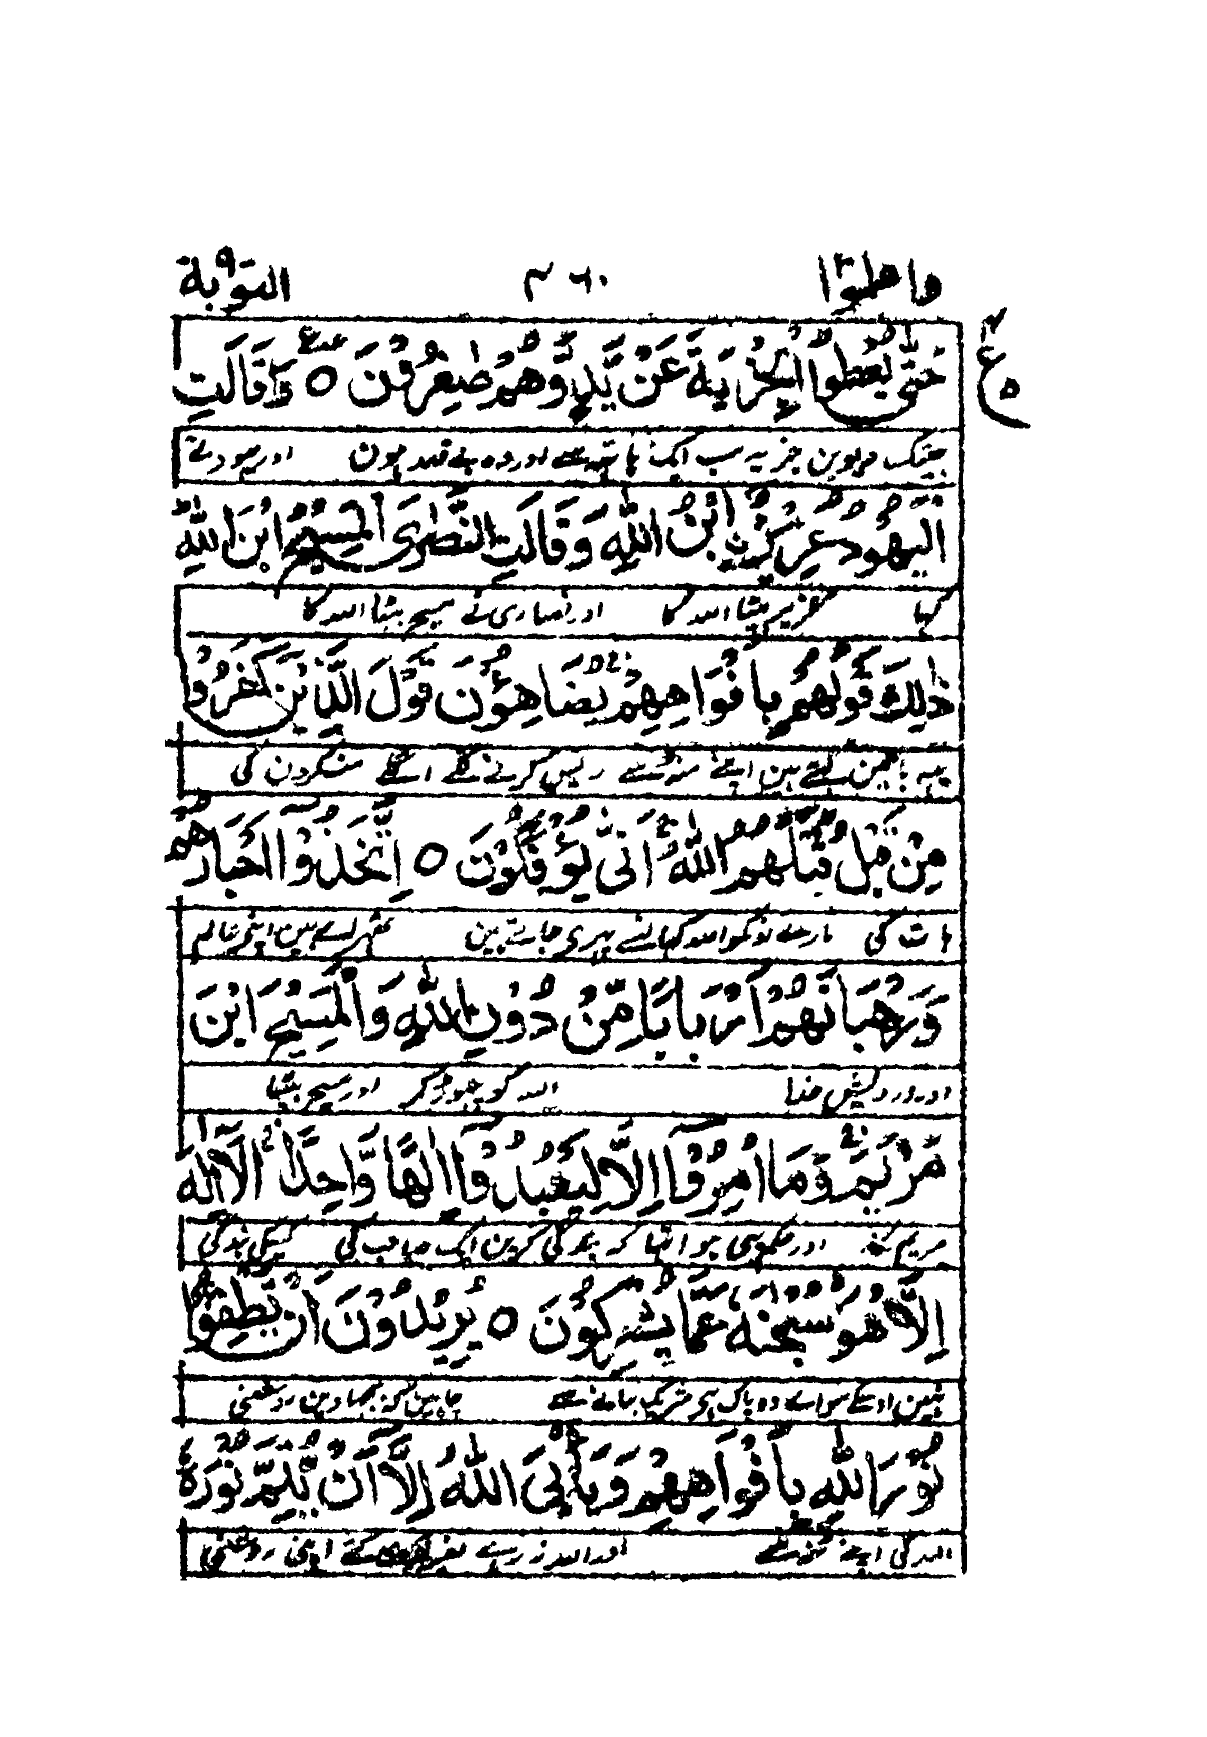 واعلموا ٣٦٠ التوبة ٩
حَتّٰى يُعْطُوا الْجِزْيَةَ عَنْ يَّدٍ وَّهُمْ صٰغِرُوْنَ ○ وَقَالَتِ
جبتک دیوین جزیہ سب ایک ہاتھ سے اور وہ بے قدر ہون اور یہود نے
الْيَهُوْدُ عُزَيْرُ ابْنُ اللّٰهِ وَقَالَتِ النَّصٰرَى الْمَسِيْحُ ابْنُ اللّٰهِ
کہا عزیر بیٹا اللہ کا اور نصاری نے مسیح بیٹا اللہ کا
ذٰلِكَ قَوْلُهُمْ بِاَفْوَاهِهِمْ يُضَاهِئُوْنَ قَوْلَ الَّذِيْنَ كَفَرُوْا
یہہ باتین کہتے ہین اپنے منہ سے ریس کرنے لگے اگلے منکرون کی
مِنْ قَبْلُ قٰتَلَهُمُ اللّٰهُ اَنّٰى يُؤْفَكُوْنَ ○ اِتَّخَذُوْٓا اَحْبَارَهُمْ
بات کی مارے انکو اللہ کہانسے پہرے جاتے ہین ٹھہراے ہین اپنے عالم
وَرُهْبَانَهُمْ اَرْبَابًا مِّنْ دُوْنِ اللّٰهِ وَالْمَسِيْحَ ابْنَ
اور درویش خدا اللہ کو چھوڑ کر اور مسیح بیٹا
مَرْيَمَ وَمَآ اُمِرُوْٓا اِلَّا لِيَعْبُدُوْٓا اِلٰهًا وَّاحِدًا لَآ اِلٰهَ
مریم کا اور حکم یہی ہوا تھا کہ بندگی کرین ایک صاحب کی کسیکی بندگی
اِلَّا هُوَ سُبْحٰنَهٗ عَمَّا يُشْرِكُوْنَ ○ يُرِيْدُوْنَ اَنْ يُّطْفِئُوْا
نہین اوسکے سواے وہ پاک ہی شریک بتانے سے چاہین کہ بجھادین روشنی
نُوْرَ اللّٰهِ بِاَفْوَاهِهِمْ وَيَاْبَى اللّٰهُ اِلَّآ اَنْ يُّتِمَّ نُوْرَهٗ
اللہ کی اپنے منہ سے اور اللہ نہ رہے بغیر پوری کئے اپنی روشنی